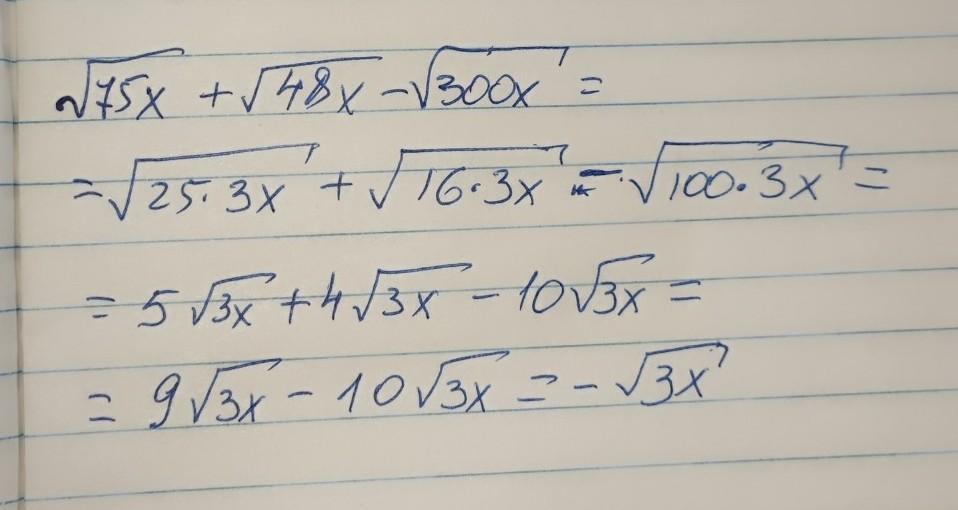 √75x + √48x - √300x =
= √25·3x + √16·3x - √100·3x =
= 5√3x + 4√3x - 10√3x =
= 9√3x - 10√3x = -√3x